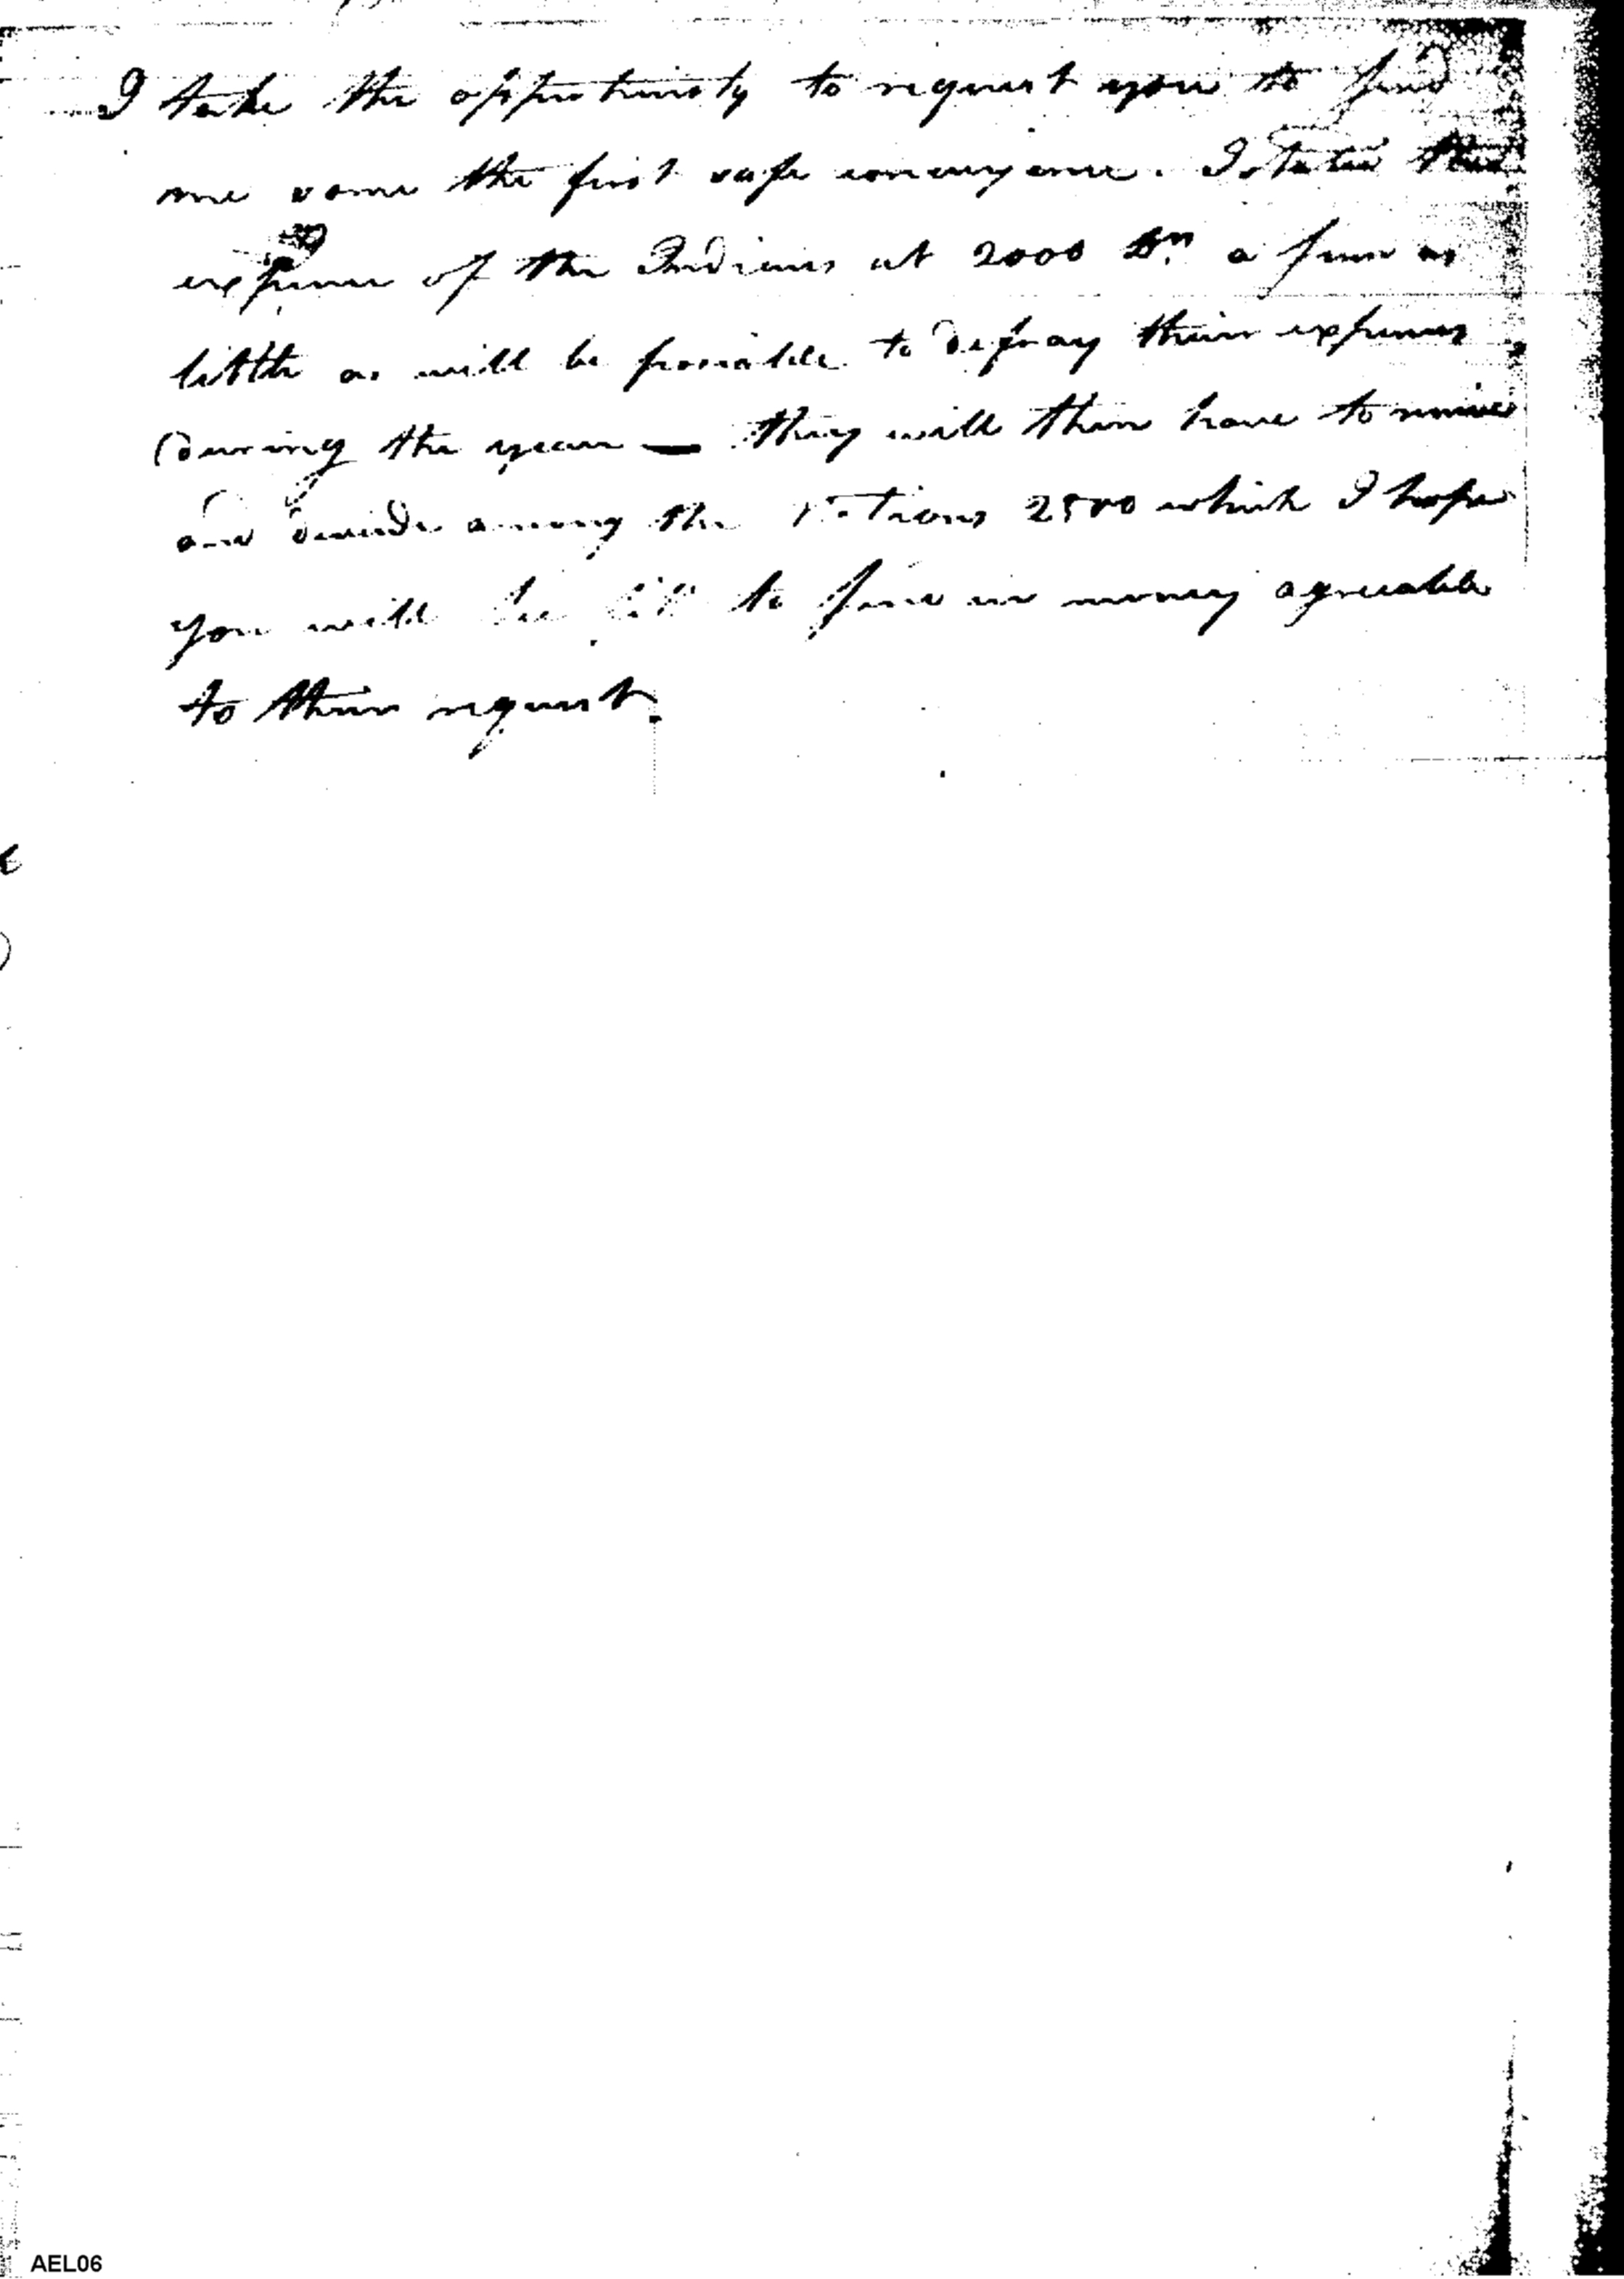 I take the opportunity to request you to send
me some the first safe conveyance. I stated the
expense of the Indians at 2000 Drs a sum as
little as will be possible to defray their expenses
during the year — they will then have to receive
and devide among the Nations 2500 which I hope
you will to send in money agreeable
to their request.
AEL06